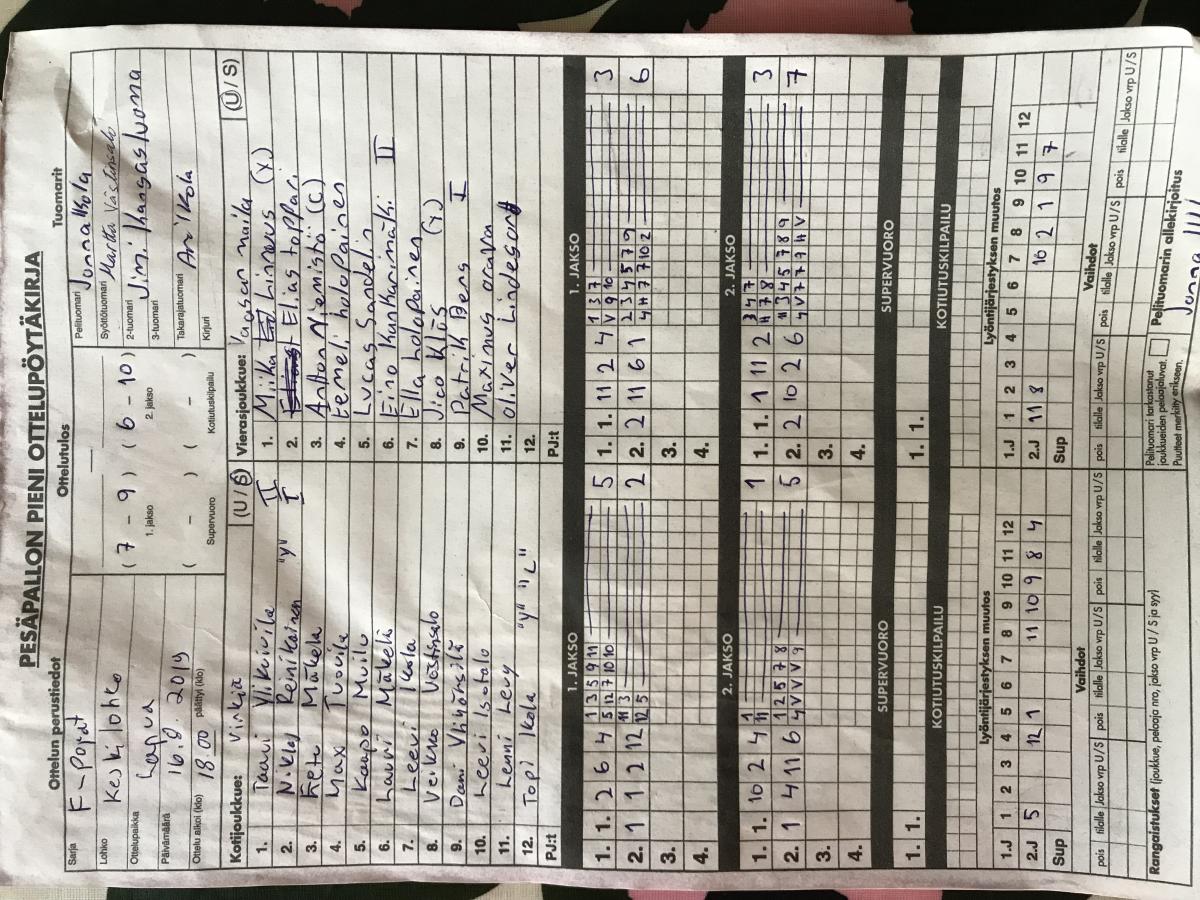 PESÄPALLON PIENI OTTELUPÖYTÄKIRJA
Ottelun perustiedot
Ottelutulos
Tuomarit
Sarja F-pojat
Lohko Keskilohko
Ottelupaikka Lapua
Päivämäärä 16.8. 2019
Ottelu alkoi (klo) 18.00 päättyi (klo)
( 7 - 9 ) ( 6 - 10 )
1. jakso 2. jakso
( - ) ( - )
Supervuoro Kotiutuskilpailu
Pelituomari Jonna Ikola
Syöttötuomari Martta Västinsalo
2-tuomari Jimi Kangasluoma
3-tuomari
Takarajatuomari Ari Ikola
Kirjuri
Kotijoukkue: Vinkiä (U / S)
1. Taavi Ylikuivila II
2. Niklas Penikainen "y" I
3. Eetu Mäkelä
4. Max Tuovila
5. Kaapo Muilu
6. Lauri Mäkelä
7. Leevi Ikola
8. Veikko Västinsalo
9. Dani Yhönsilä
10. Leevi Isotalo
11. Lenni Levy
12. Topi Ikola "y" "L"
PJ:t
Vierasjoukkue: Vaasan maila (U / S)
1. Miika Linnus (x)
2. Elias toppari
3. Anton Niemistö (c)
4. Eemeli holopainen
5. Lucas Sandelin
6. Eino Kunkunmäki II
7. Ella holopainen
8. Jico Kliis (y)
9. Patrik Berg I
10. Maximus orava
11. oliver Lindegard
12.
PJ:t
1. JAKSO
1. 1. 2 6 4 1 3 5 9 11 5
5 12 7 10 10
2. 1 1 2 12 11 3 2
12 5
3.
4.
1. JAKSO
1. 1. 11 2 4 1 3 7 3
V 9 10
2. 2 11 6 1 2 3 4 5 7 9 6
4 11 7 7 10 2
3.
4.
2. JAKSO
1. 1. 10 2 4 1 1
11
2. 1 4 11 6 1 2 5 7 8 5
4 V V V 9
3.
4.
2. JAKSO
1. 1. 1 11 2 3 4 7 3
11 7 8
2. 2 10 2 6 11 3 4 5 7 8 9 7
4 V 7 7 9 11 V
3.
4.
SUPERVUORO
1. 1.
SUPERVUORO
1. 1.
KOTIUTUSKILPAILU
KOTIUTUSKILPAILU
Lyöntijärjestyksen muutos
1.J 1 2 3 4 5 6 7 8 9 10 11 12
2.J 5 12 1 11 10 9 8 4
Sup
Lyöntijärjestyksen muutos
1.J 1 2 3 4 5 6 7 8 9 10 11 12
2.J 11 8 10 2 1 9 7
Sup
Vaihdot
pois tilalle Jakso vrp U / S pois tilalle Jakso vrp U / S pois tilalle Jakso vrp U / S
Vaihdot
pois tilalle Jakso vrp U / S pois tilalle Jakso vrp U / S pois tilalle Jakso vrp U / S
Rangaistukset (joukkue, pelaaja nro, jakso vrp U / S ja syy)
Pelituomari tarkastanut
joukkueiden pelaajaluvat.
Puutteet merkitty erikseen.
Pelituomarin allekirjoitus
Jonna